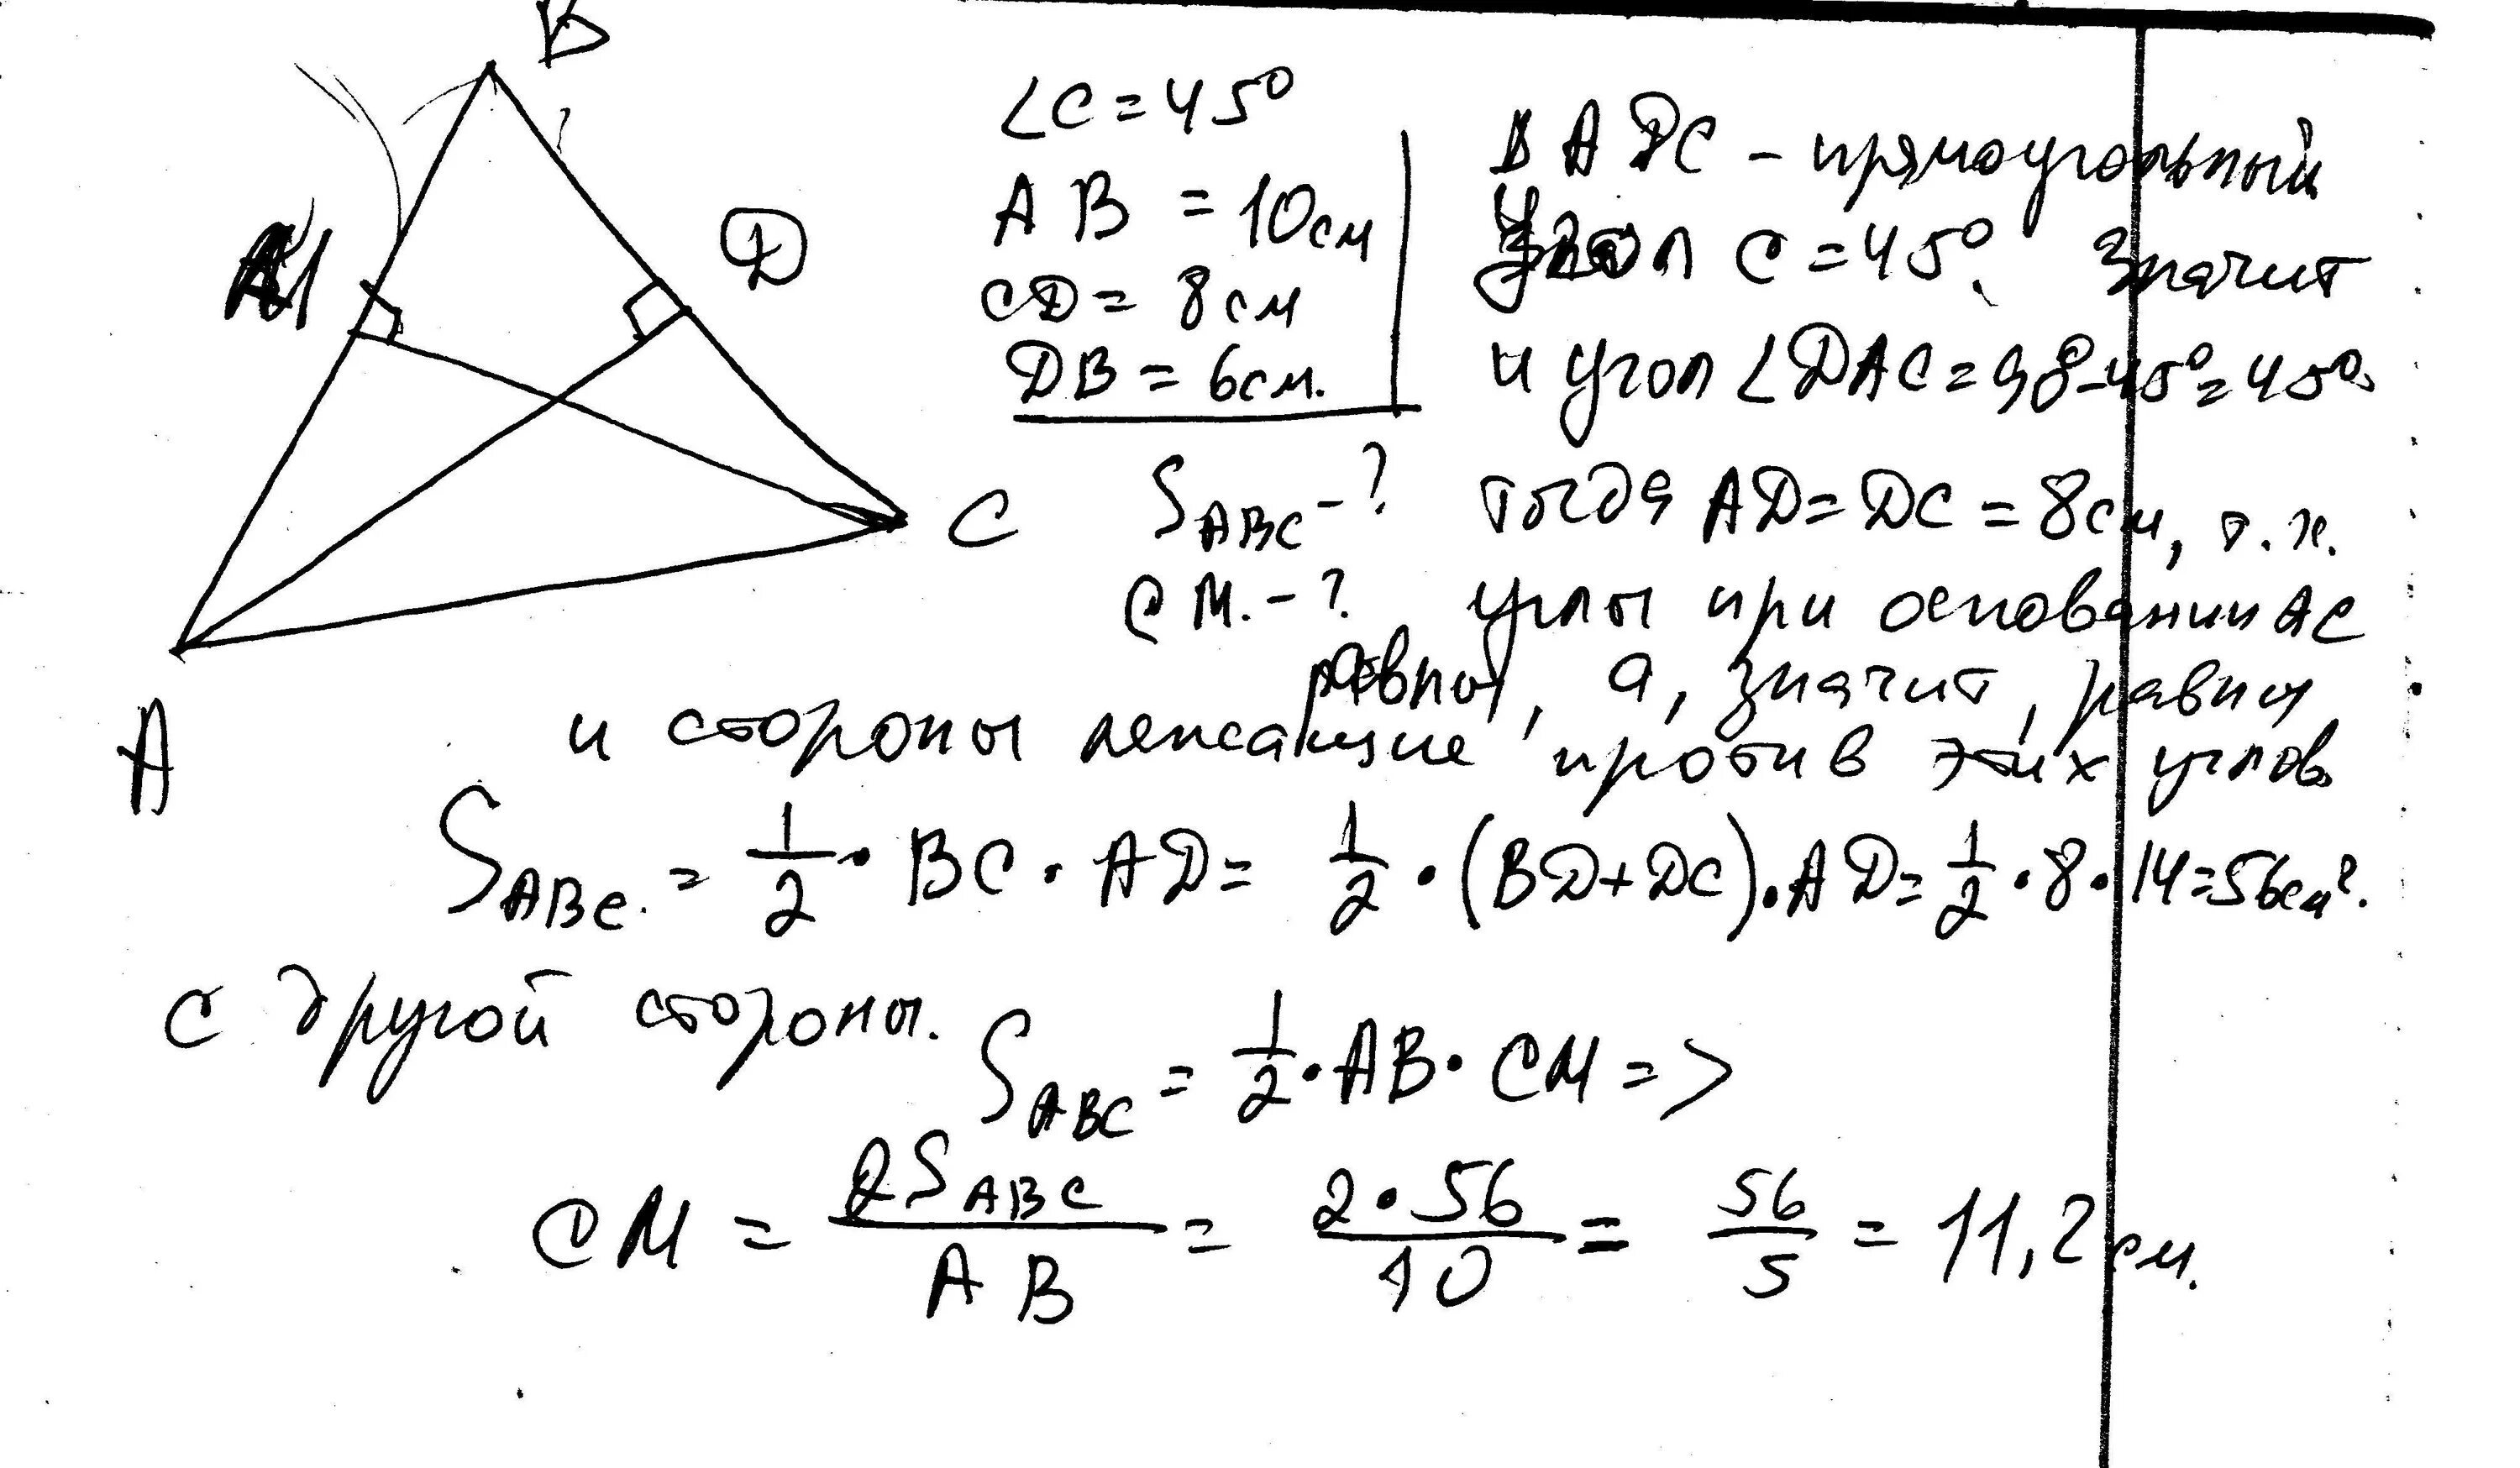 B
∠C = 45°
AB = 10см
CD = 8см
DB = 6см.
S_ABC - ?
CM. - ?
D
C
A
Δ ADC - прямоугольный
Угол C = 45°, значит
и угол ∠DAC = 90°-45° = 45°
тогда AD = DC = 8см, т.к.
углы при основании AC
равны, а, значит, равны
и стороны лежащие против этих углов
S_ABC. = 1/2 · BC · AD = 1/2 · (BD+DC) · AD = 1/2 · 8 · 14 = 56см².
с другой стороны.
S_ABC = 1/2 · AB · CM =>
CM = 2S_ABC/AB = 2·56/10 = 56/5 = 11,2см.